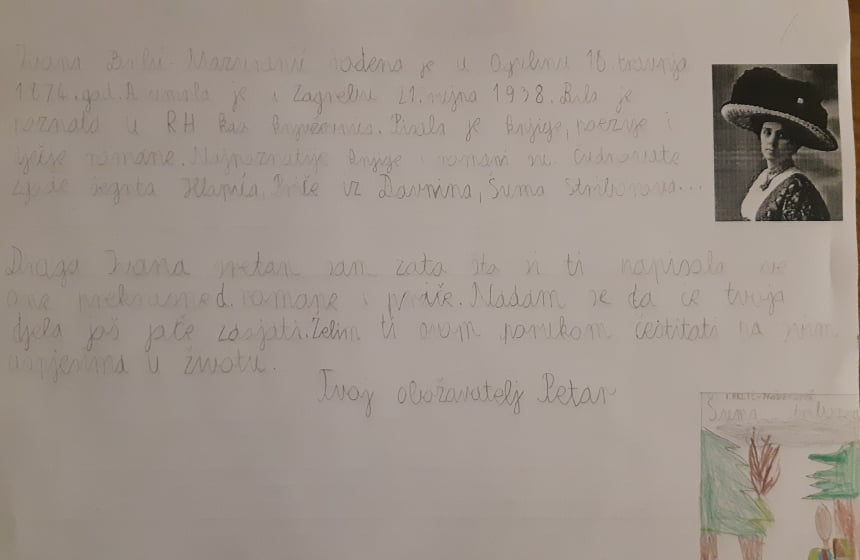 Ivana Brlić-Mažuranić rođena je u Ogulinu 18. travnja
1874. god. A umrla je u Zagrebu 21. rujna 1938. Bila je
poznata u RH kao književnica. Pisala je knjige, poezije i
dječje romane. Najpoznatije knjige i romani su: Čudnovate
zgode šegrta Hlapića, Priče iz Davnina, Šuma Striborova...
Draga Ivana sretan sam zato što si ti napisala sve
one prekrasne d. romane i priče. Nadam se da će tvoja
djela još jače zasjati. Želim ti ovom porukom čestitati na svim
uspjesima u životu.
Tvoj obožavatelj Petar
Šuma